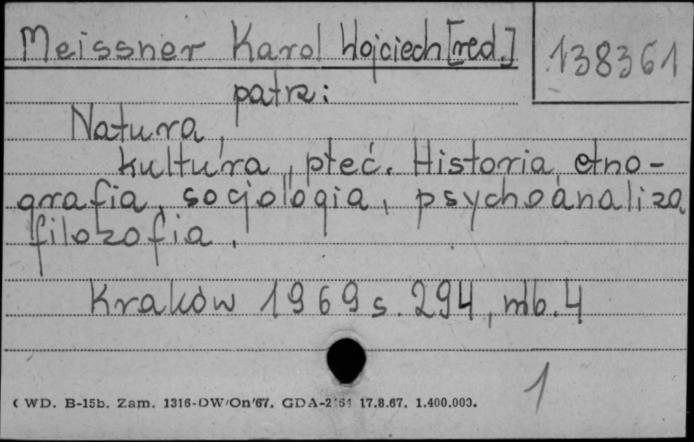 Meissner Karol Wojciech [red.]
138361
patrz:
Natura,
kultura, płeć. Historia, etno-
grafia, socjologia, psychoanaliza,
filozofia.
Kraków 1969 s. 294, nlb. 4
1
WD. B-15b. Zam. 1316-DW/On/67. GDA-2 17.8.67. 1.400.000.